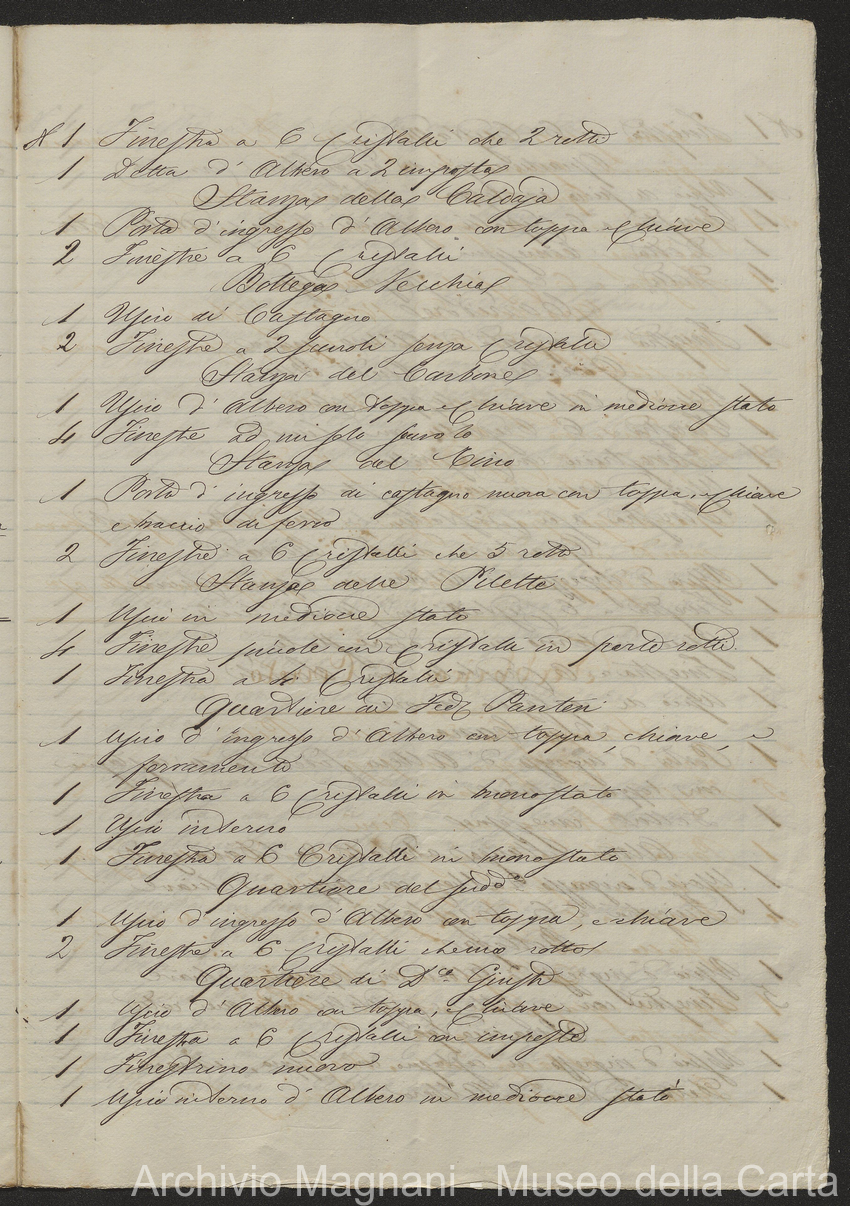 N 1 Finestra a 6 Cristalli che 2 rotti
1 Detta d' Albero a 2 imposte
Stanza della Caldaja
1 Porta d'ingresso d' Albero con toppa e Chiave
2 Finestre a 6 Cristalli
Bottega Vecchia
1 Uscio di Castagno
2 Finestre a 2 scuroli senza Cristalli
Stanza del Carbone
1 Uscio d' Albero con toppa e Chiave in mediocre stato
4 Finestre ad un solo scurolo
Stanza del Tino
1 Porta d' ingresso di castagno nuova con toppa, e Chiave
e braccio di ferro
2 Finestre a 6 Cristalli che 5 rotti
Stanza delle Pilette
1 Uscio in mediocre stato
4 Finestre piccole con Cristalli in parte rotti.
1 Finestra a 4 Cristalli
Quartiere di Panteri
1 Uscio d' ingresso d' Albero con toppa, chiave, e
serramento
1 Finestra a 6 Cristalli in buono stato
1 Uscio interno
1 Finestra a 6 Cristalli in buono stato
Quartiere del sudd°
1 Uscio d'ingresso d' Albero con toppa, e chiave
2 Finestre a 6 Cristalli che uno rotto
Quartiere di D.co Giusti
1 Uscio d' Albero con toppa, e Chiave
1 Finestra a 6 Cristalli con imposte
1 Finestrino nuovo
1 Uscio interno d' Albero in mediocre stato
Archivio Magnani - Museo della Carta